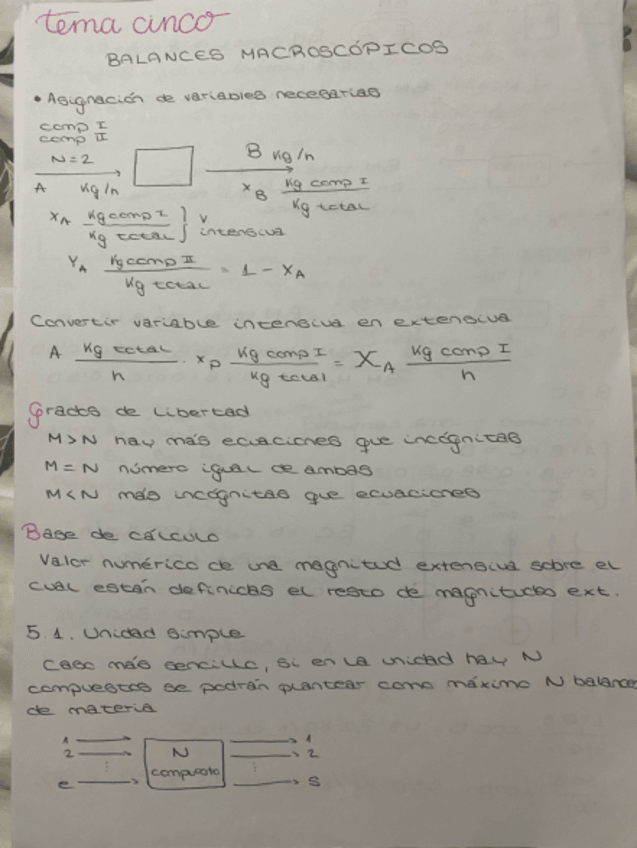 tema cinco
BALANCES MACROSCÓPICOS
• Asignación de variables necesarias
comp I
comp II
N=2
B kg/h
A kg/h
x_B kg comp I / kg total
x_A kg comp I / kg total } v intensiva
Y_A kg comp II / kg total = 1 - x_A
Convertir variable intensiva en extensiva
A kg total / h · x_p kg comp I / kg total = X_A kg comp I / h
Grados de libertad
M>N hay más ecuaciones que incógnitas
M=N número igual de ambas
M<N más incógnitas que ecuaciones
Base de cálculo
Valor numérico de una magnitud extensiva sobre el
cual están definidas el resto de magnitudes ext.
5.1. Unidad simple
Caso más sencillo, si en la unidad hay N
compuestos se podrán plantear como máximo N balances
de materia
1
2
⋮
e
N
compuesto
1
2
⋮
s